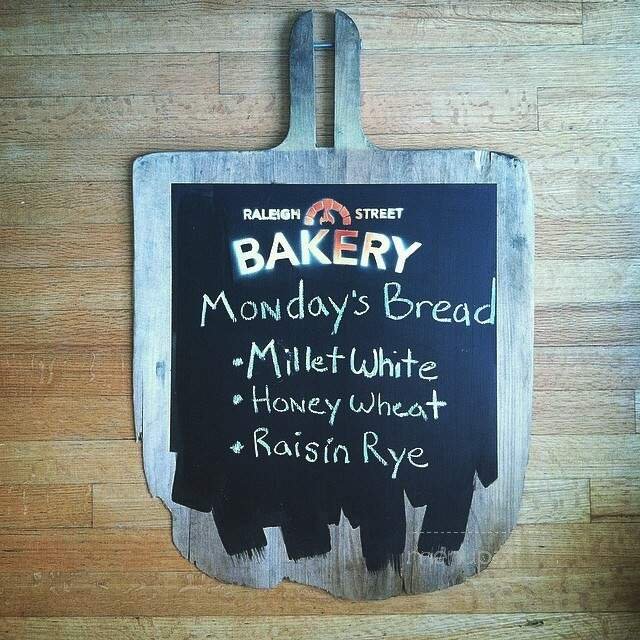 RALEIGH STREET
BAKERY
Monday's Bread
• Millet White
• Honey Wheat
• Raisin Rye